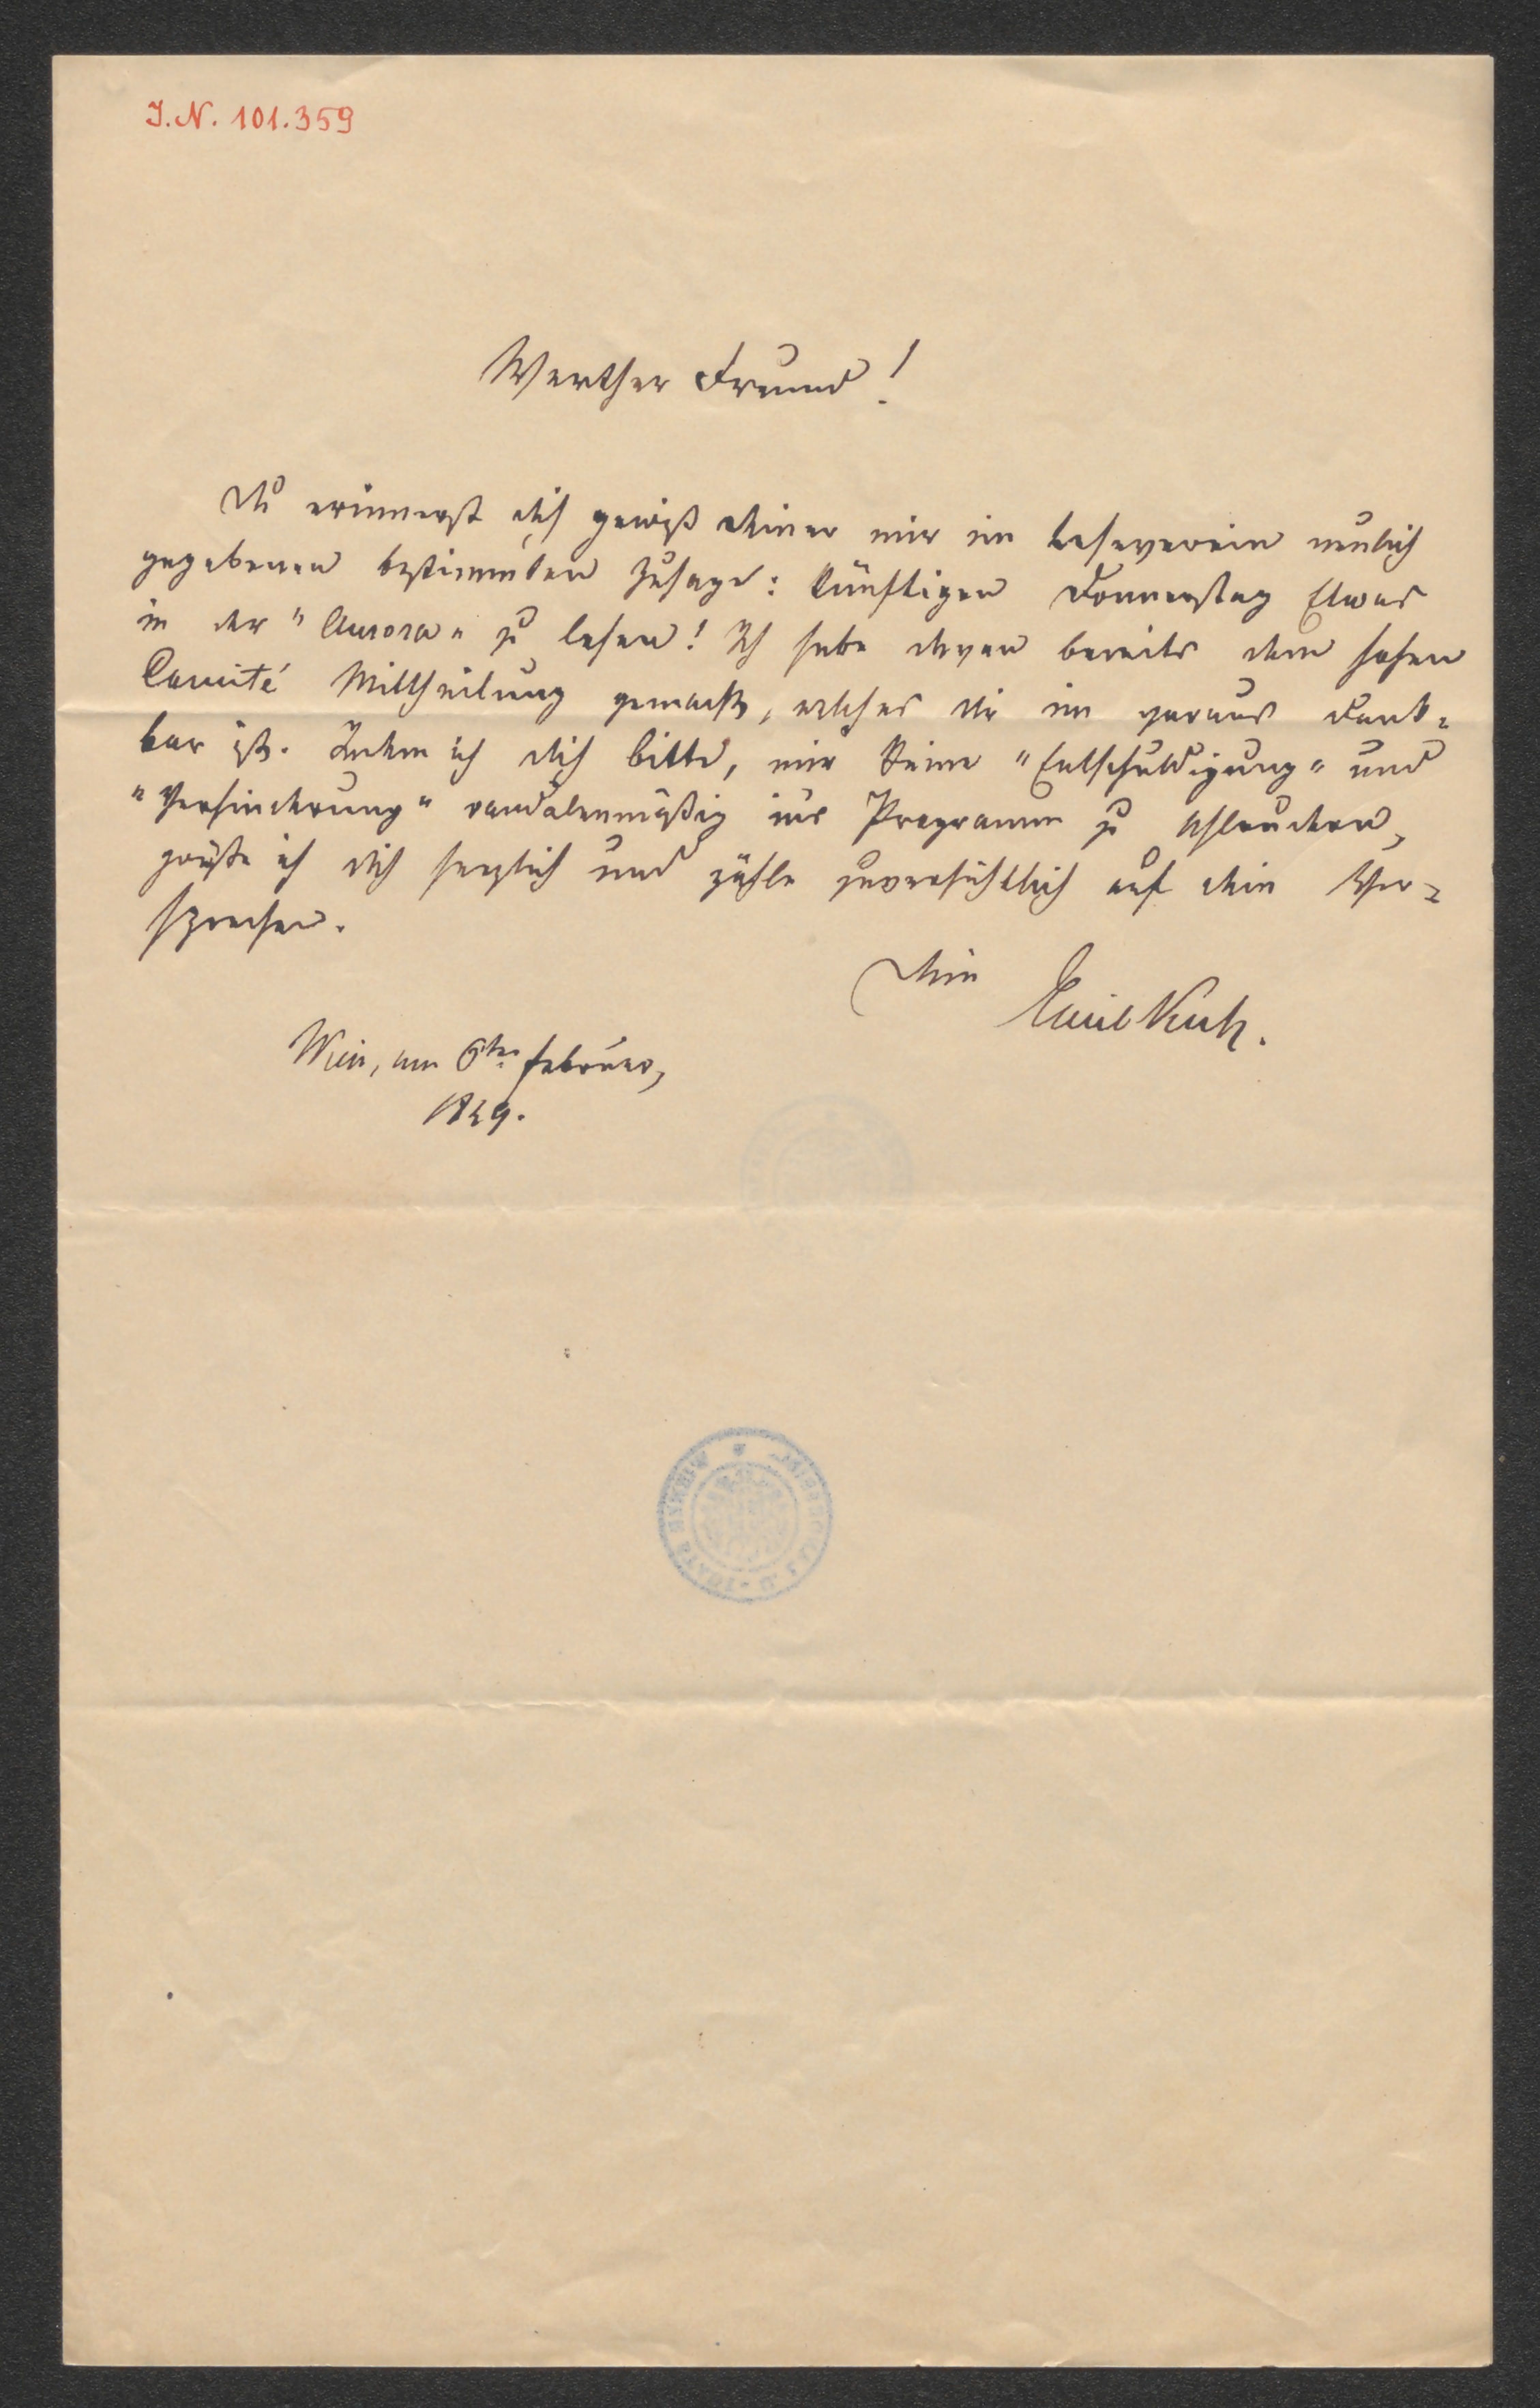 I.N. 101.359
Werther Freund!
Du erinnerst dich gewiß deiner mir im Leseverein neulich
gegebenen bestimmten Zusage: künftigen Donnerstag Etwas
in der "Aurora" zu lesen! Ich habe davon bereits dem hohen
Comité Mittheilung gemacht, welches dir im voraus dank=
bar ist. Indem ich dich bitte, mir keine "Entschuldigung" und
"Verhinderung" vandalenmäßig ins Programm zu schleudern,
grüße ich dich herzlich und zähle zuversichtlich auf dein Ver=
sprechen.
Dein Emil Kuh.
Wien, am 6ten Februar,
1859.